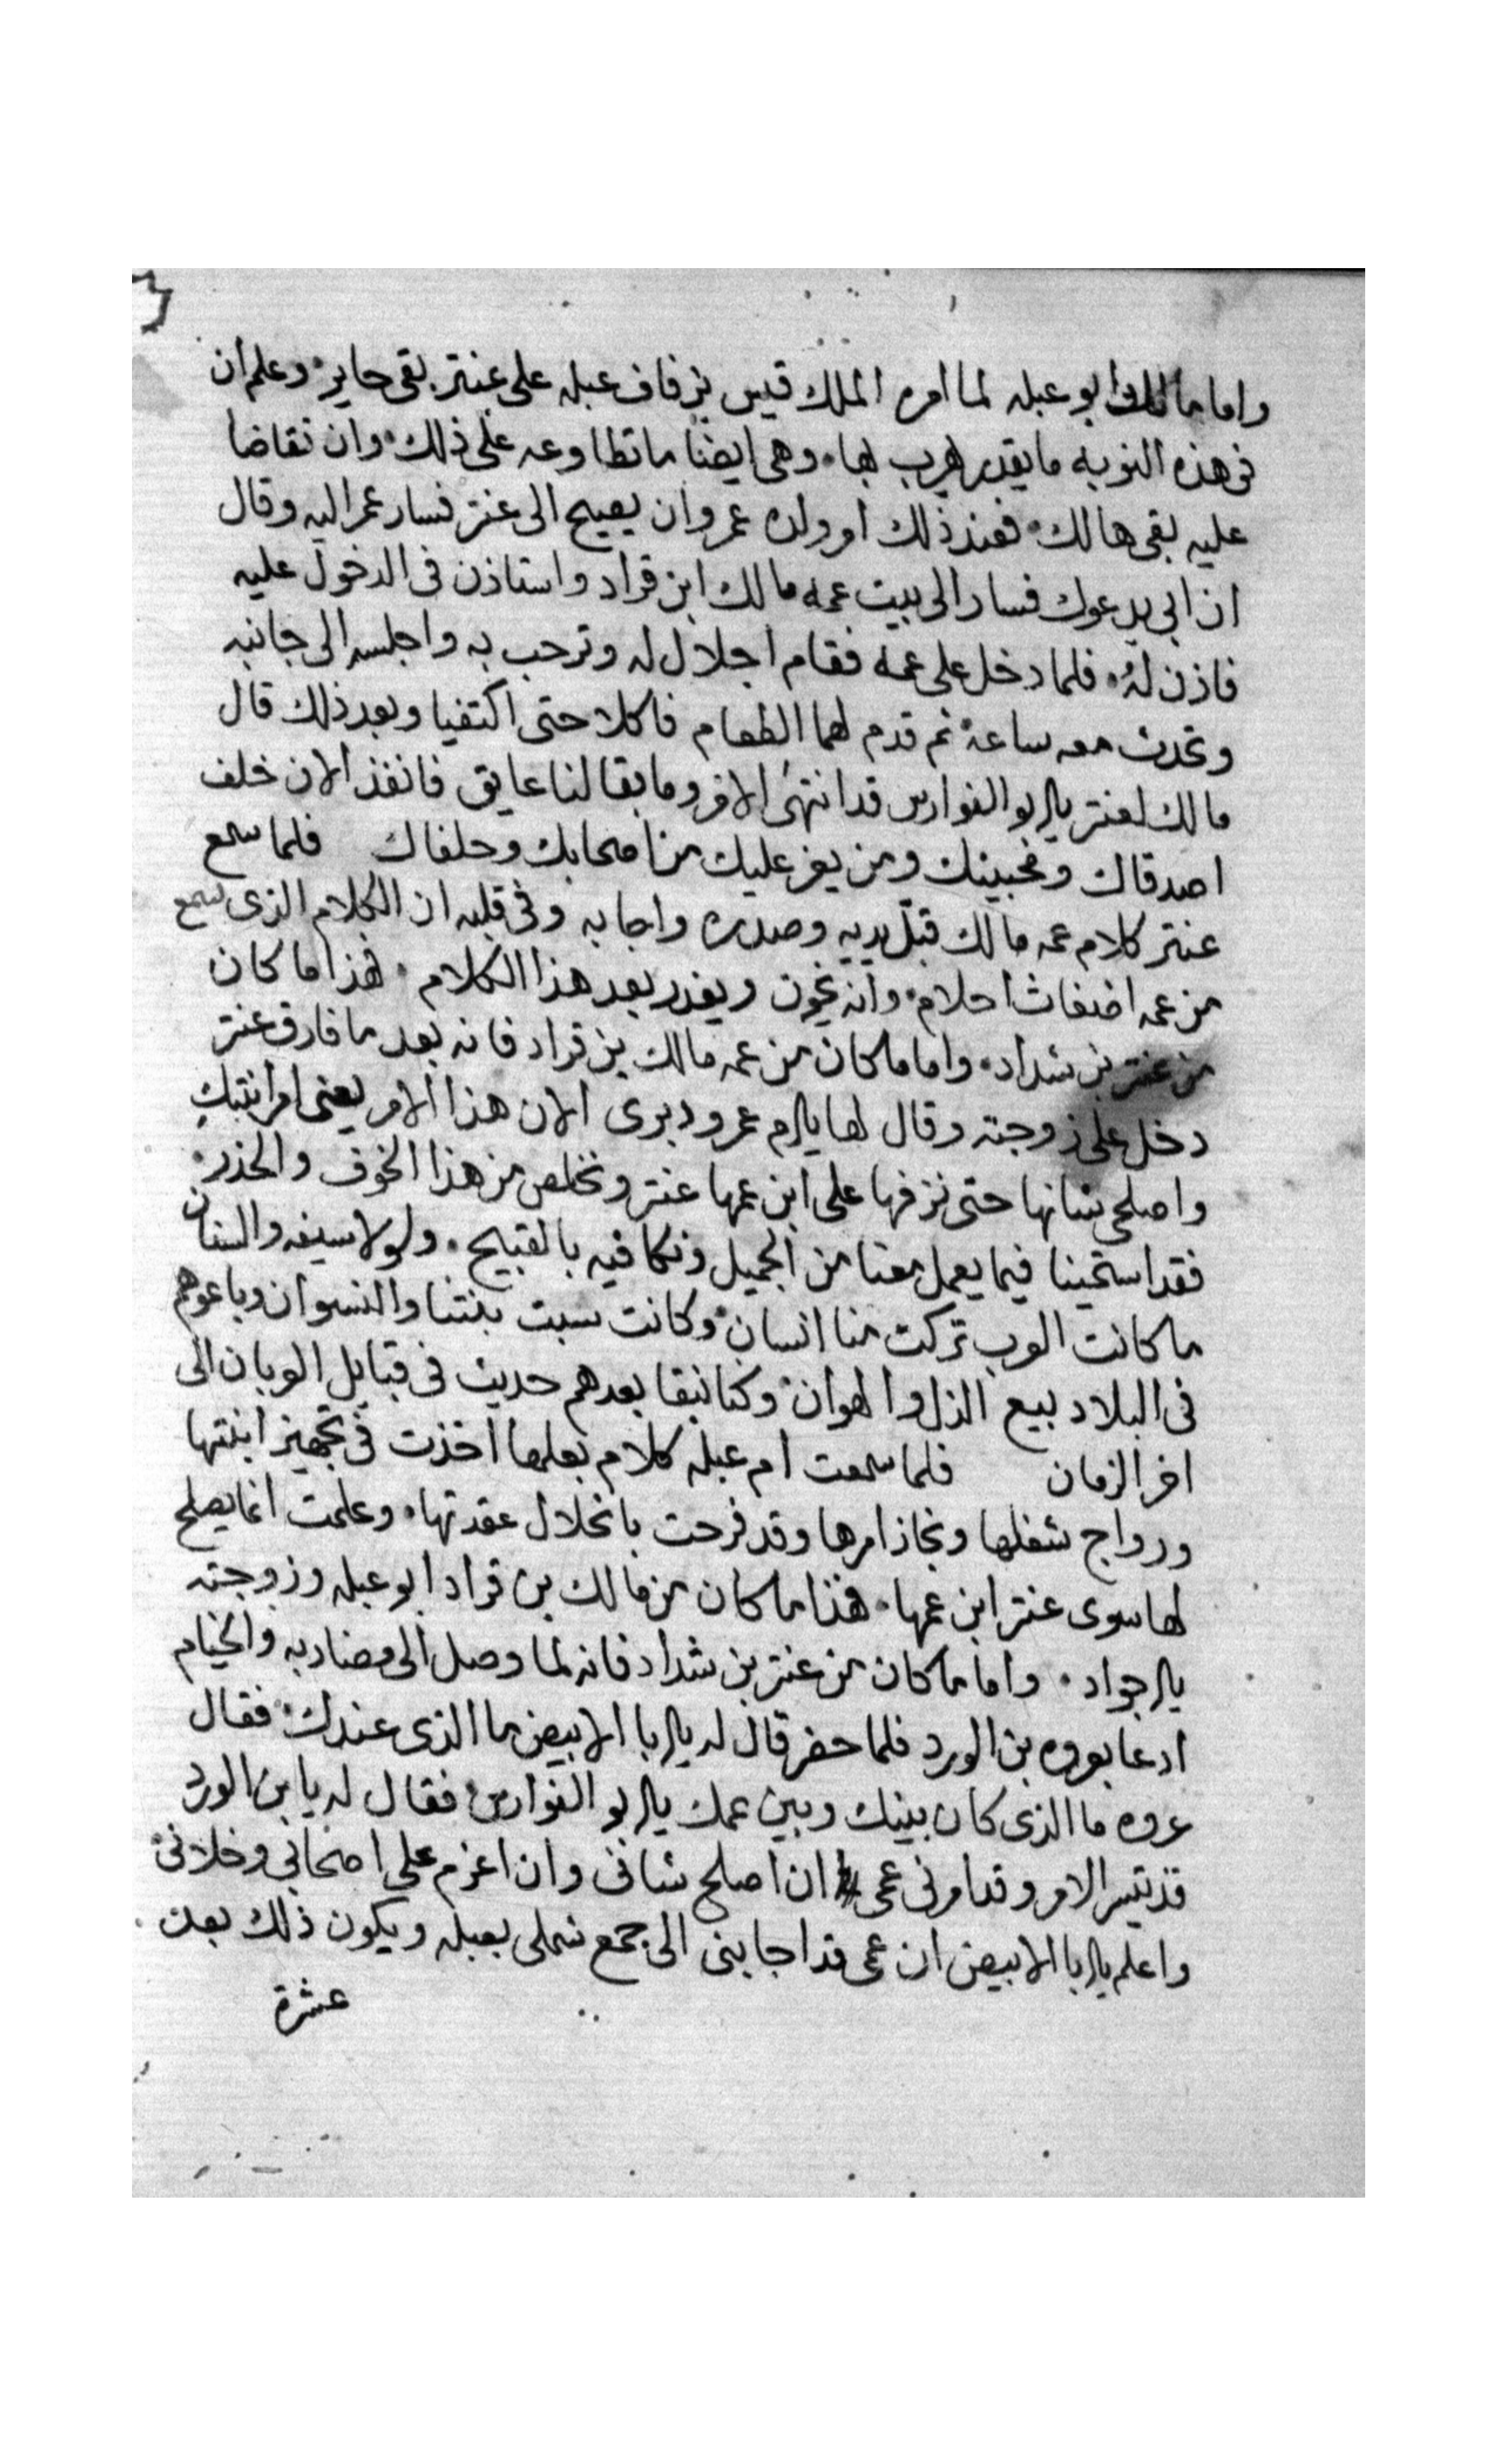 واما مالك ابو عبله لما امره الملك قيس بزفاف عبله على عنتر بقى حاير وعلم ان
فى هذه النوبه ما يقدر يهرب بها وهى ايضًا ما تطاوعه على ذلك وان تقاضا
عليه بقى هالك فعند ذلك امر ولده عمرو ان يصيح الى عنتر فسار عمر اليه وقال
ان ابى يدعوك فسار الى بيت عمه مالك ابن قراد واستاذن فى الدخول عليه
فاذن له فلما دخل على عمه فقام اجلال له وترحب به واجلسه الى جانبه
وتحدث معه ساعة ثم قدم لهما الطعام فاكلا حتى اكتفيا وبعد ذلك قال
مالك لعنتر يابو الفوارس قد انتهى الامر وما بقا لنا عايق فانفذ الان خلف
اصدقاك ومحبينك ومن يعز عليك من اصحابك وحلفاك فلما سمع
عنتر كلام عمه مالك قبّل يديه وصدره واجابه وفى قلبه ان الكلام الذى سمع
من عمه اضغاث احلام وانه يخون ويغدر بعد هذا الكلام هذا ما كان
من عنتر بن شداد واما ما كان من عمه مالك بن قراد فانه بعد ما فارق عنتر
دخل على زوجته وقال لها يام عمرو دبرى الان هذا الامر يعنى امر ابنتك
واصلحى شانها حتى نزفها على ابن عمها عنتر ونخلص من هذا الخوف والحذر
فقد استحينا فيما يعمل معنا من الجميل ونكافيه بالقبيح ولولا سيفه والسنان
ما كانت العرب تركت منا انسان وكانت سبت بنتنا والنسوان وباعوهم
فى البلاد بيع الذل والهوان وكنا نبقا بعدهم حديث فى قبايل العربان الى
اخر الزمان فلما سمعت ام عبله كلام بعلها اخذت فى تجهيز ابنتها
ورواج شغلها ونجاز امرها وقد فرحت بانحلال عقدتها وعلمت انما يصلح
لها سوى عنتر ابن عمها هذا ما كان من مالك بن قراد ابو عبله وزوجته
ياجواد واما ما كان من عنتر بن شداد فانه لما وصل الى مضاربه والخيام
ادعا بعروه بن الورد فلما حضر قال له يابا الابيض ما الذى عندك فقال
عروه ما الذى كان بينك وبين عمك يابو الفوارس فقال له يا بن الورد
قد تيسر الامر وقد امرنى عمى ان اصلح شانى وان اعزم على اصحابى وخلانى
واعلم يابا الابيض ان عمى قد اجابنى الى جمع شملى بعبله ويكون ذلك بعد
عشرة